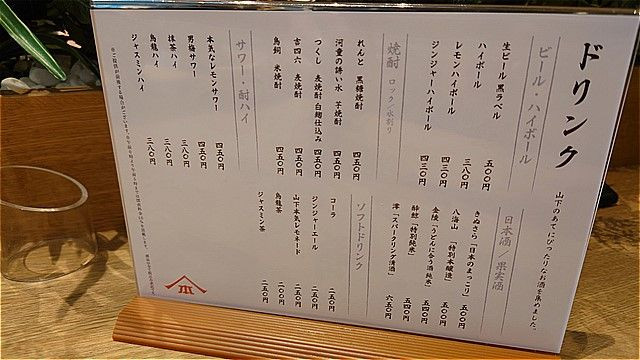 ドリンク
山下のあてにぴったりなお酒を集めました。
ビール・ハイボール
生ビール 黒ラベル 五〇〇円
ハイボール 三八〇円
レモンハイボール 四三〇円
ジンジャーハイボール 四三〇円
焼酎 ロック/水割り
れんと 黒糖焼酎 四五〇円
河童の誘い水 芋焼酎 四五〇円
つくし 麦焼酎 白麹仕込み 四五〇円
吉四六 麦焼酎 四五〇円
鳥飼 米焼酎 四五〇円
サワー・酎ハイ
本気なレモンサワー 四五〇円
男梅サワー 四五〇円
抹茶ハイ 三八〇円
烏龍ハイ 三八〇円
ジャスミンハイ 三八〇円
日本酒/果実酒
きぬさら「日本のまっこり」 五〇〇円
八海山 「特別本醸造」 五〇〇円
金陵「うどんに合う酒 純米」 五四〇円
酔鯨「特別純米」 五四〇円
澪「スパークリング清酒」 六五〇円
ソフトドリンク
コーラ 二五〇円
ジンジャーエール 二五〇円
山下本気レモネード 二五〇円
烏龍茶 二〇〇円
ジャスミン茶 二五〇円